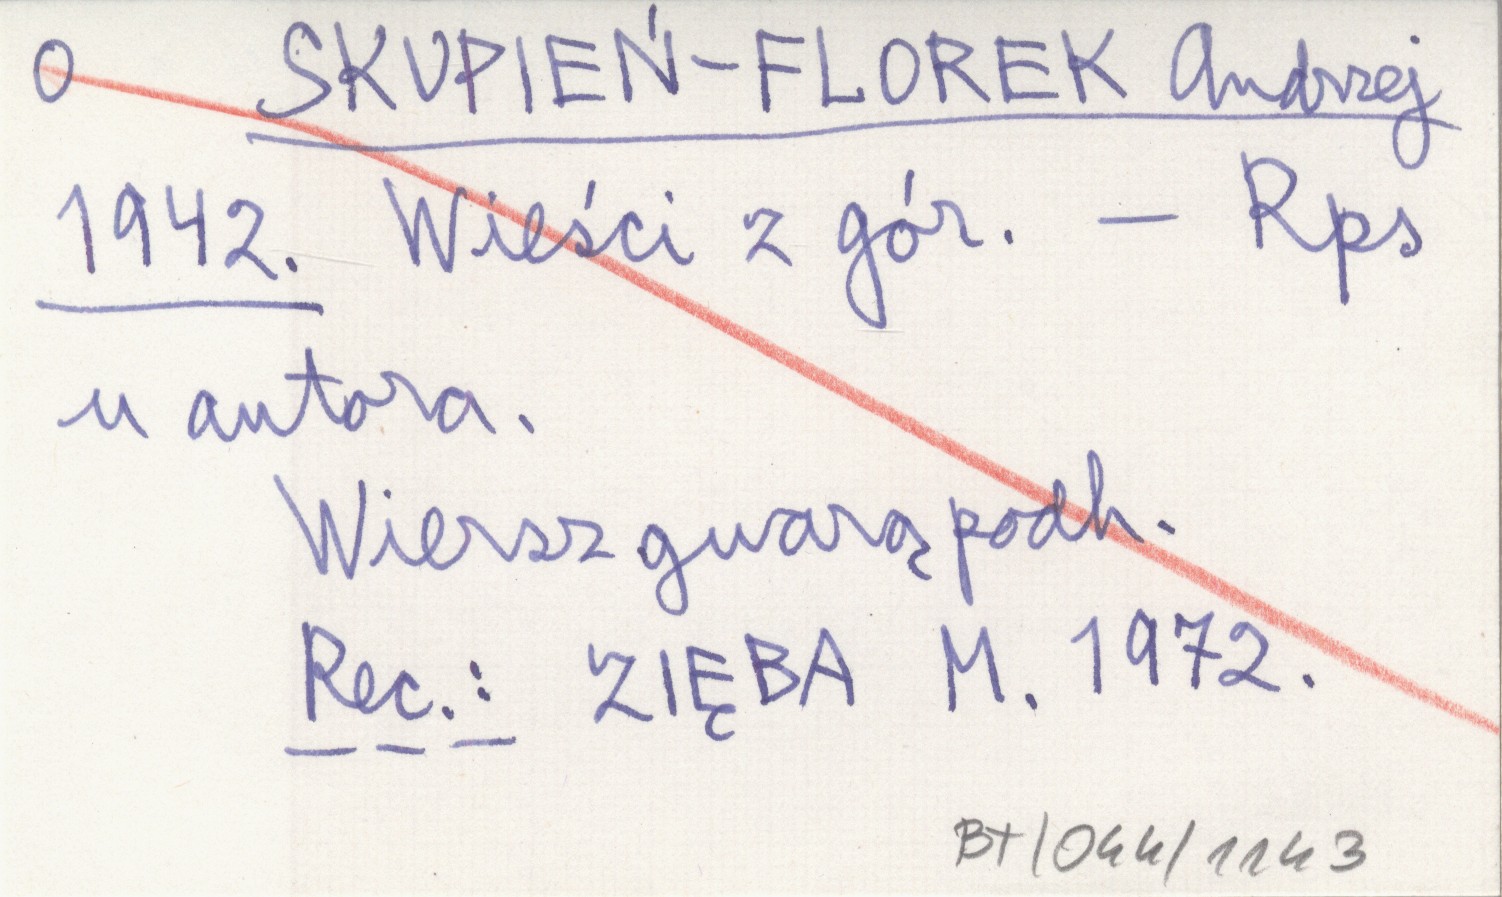 O SKUPIEŃ-FLOREK Andrzej
1942. Wieści z gór. — Rps
u autora.
Wiersz gwarą podh.
Rec.: ZIĘBA M. 1972.
BT/044/1143